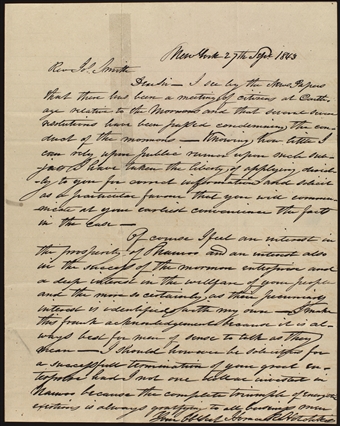 New York 27th Sept. 1843
Rev Js. Smith
Dear Sir – I see by the News Papers
that there has been a meeting of citizens at Carth-
age relative to the Mormons and that several
resolutions have been passed condemning the con-
duct of the mormons – Knowing how little I
can rely upon public rumor upon such sub-
jects I have taken the liberty of applying direct-
ly to you for correct information and solicit
as a particular favour that you will commu-
nicate at your earliest convenience the facts
in the case –
Of course I feel an interest in
the prosperity of Nauvoo and an interest also
in the success of the mormon enterprise and
a deep interest in the wellfare of your people
and the more so certainly, as their pecuniary
interest is identified with my own – I make
this frank acknowledgement because it is al-
ways best for men of sense to talk as they
mean – I should however be solicitous for
a successfull termination of your great en-
terprise had I not one dollar invested in
Nauvoo because the complete triumph of energetic
exertions is always gratifying to all business men
Your Obt Svt